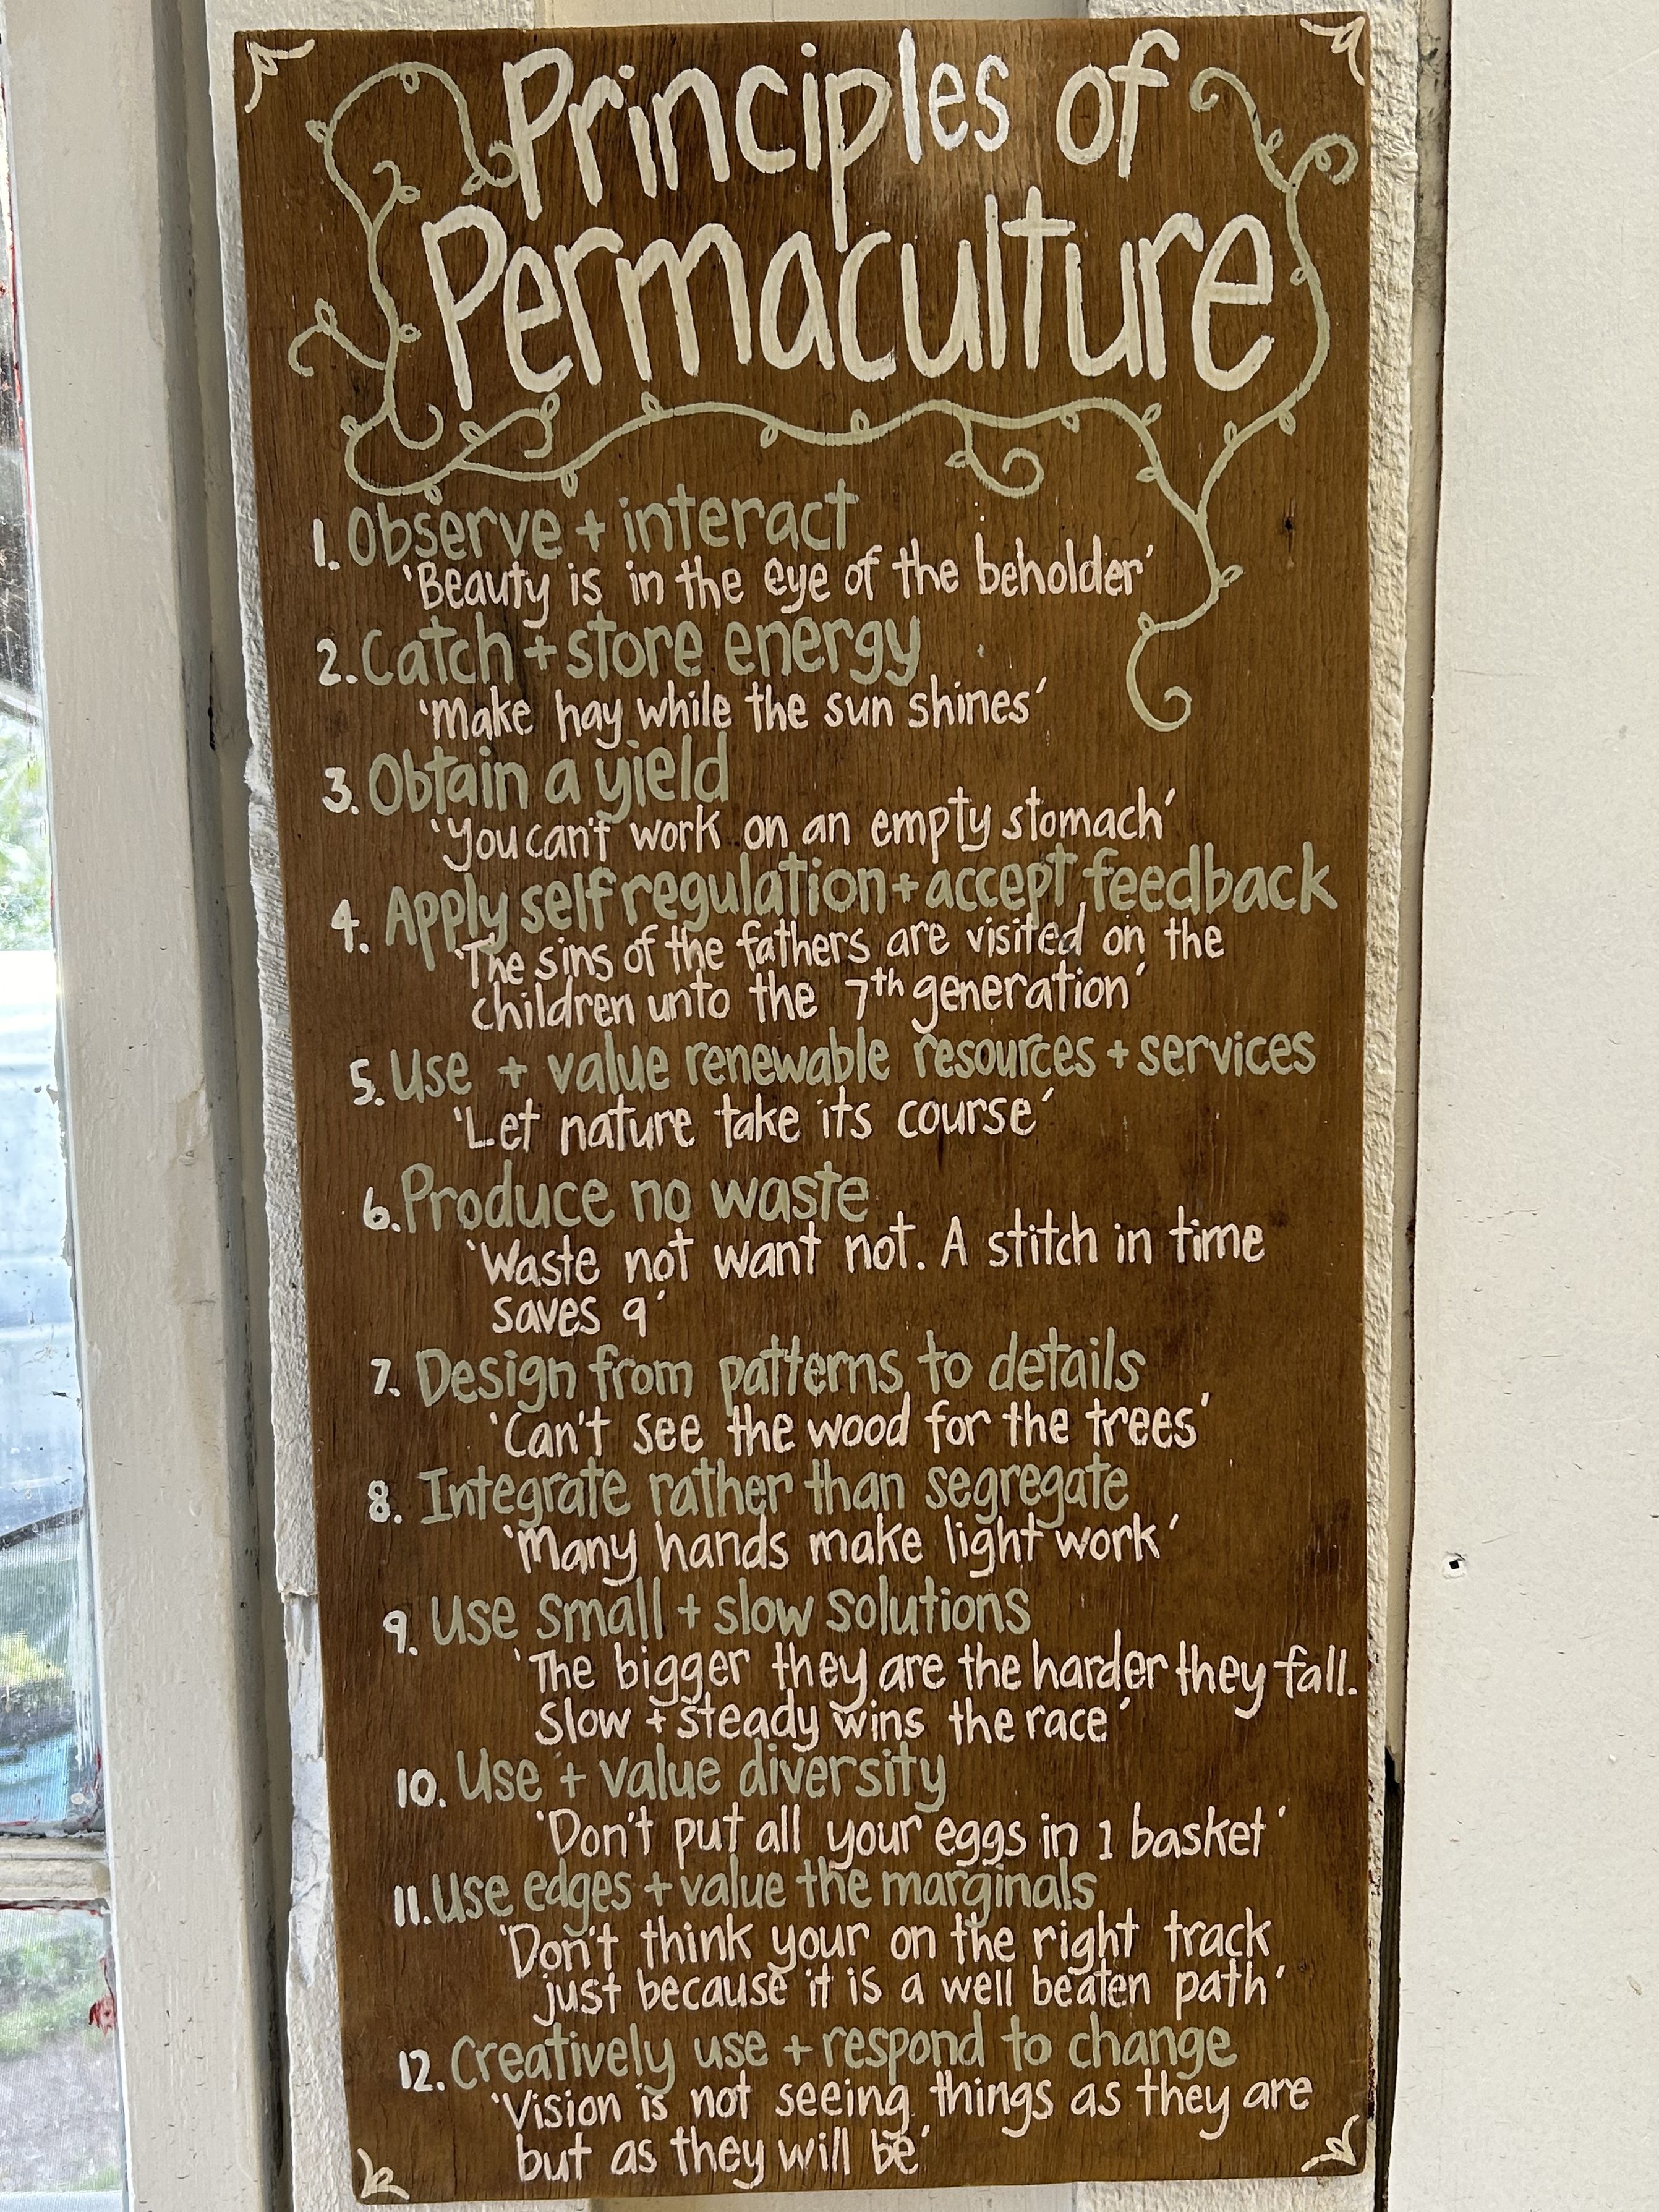 Principles of
Permaculture
1. Observe + interact
'Beauty is in the eye of the beholder'
2. Catch + store energy
'Make hay while the sun shines'
3. Obtain a yield
'You can't work on an empty stomach'
4. Apply self regulation + accept feedback
'The sins of the fathers are visited on the
children unto the 7th generation'
5. Use + value renewable resources + services
'Let nature take its course'
6. Produce no waste
'Waste not want not. A stitch in time
saves 9'
7. Design from patterns to details
'Can't see the wood for the trees'
8. Integrate rather than segregate
'Many hands make light work'
9. Use small + slow solutions
'The bigger they are the harder they fall.
Slow + steady wins the race'
10. Use + value diversity
'Don't put all your eggs in 1 basket'
11. Use edges + value the marginals
'Don't think your on the right track
just because it is a well beaten path'
12. Creatively use + respond to change
'Vision is not seeing things as they are
but as they will be'